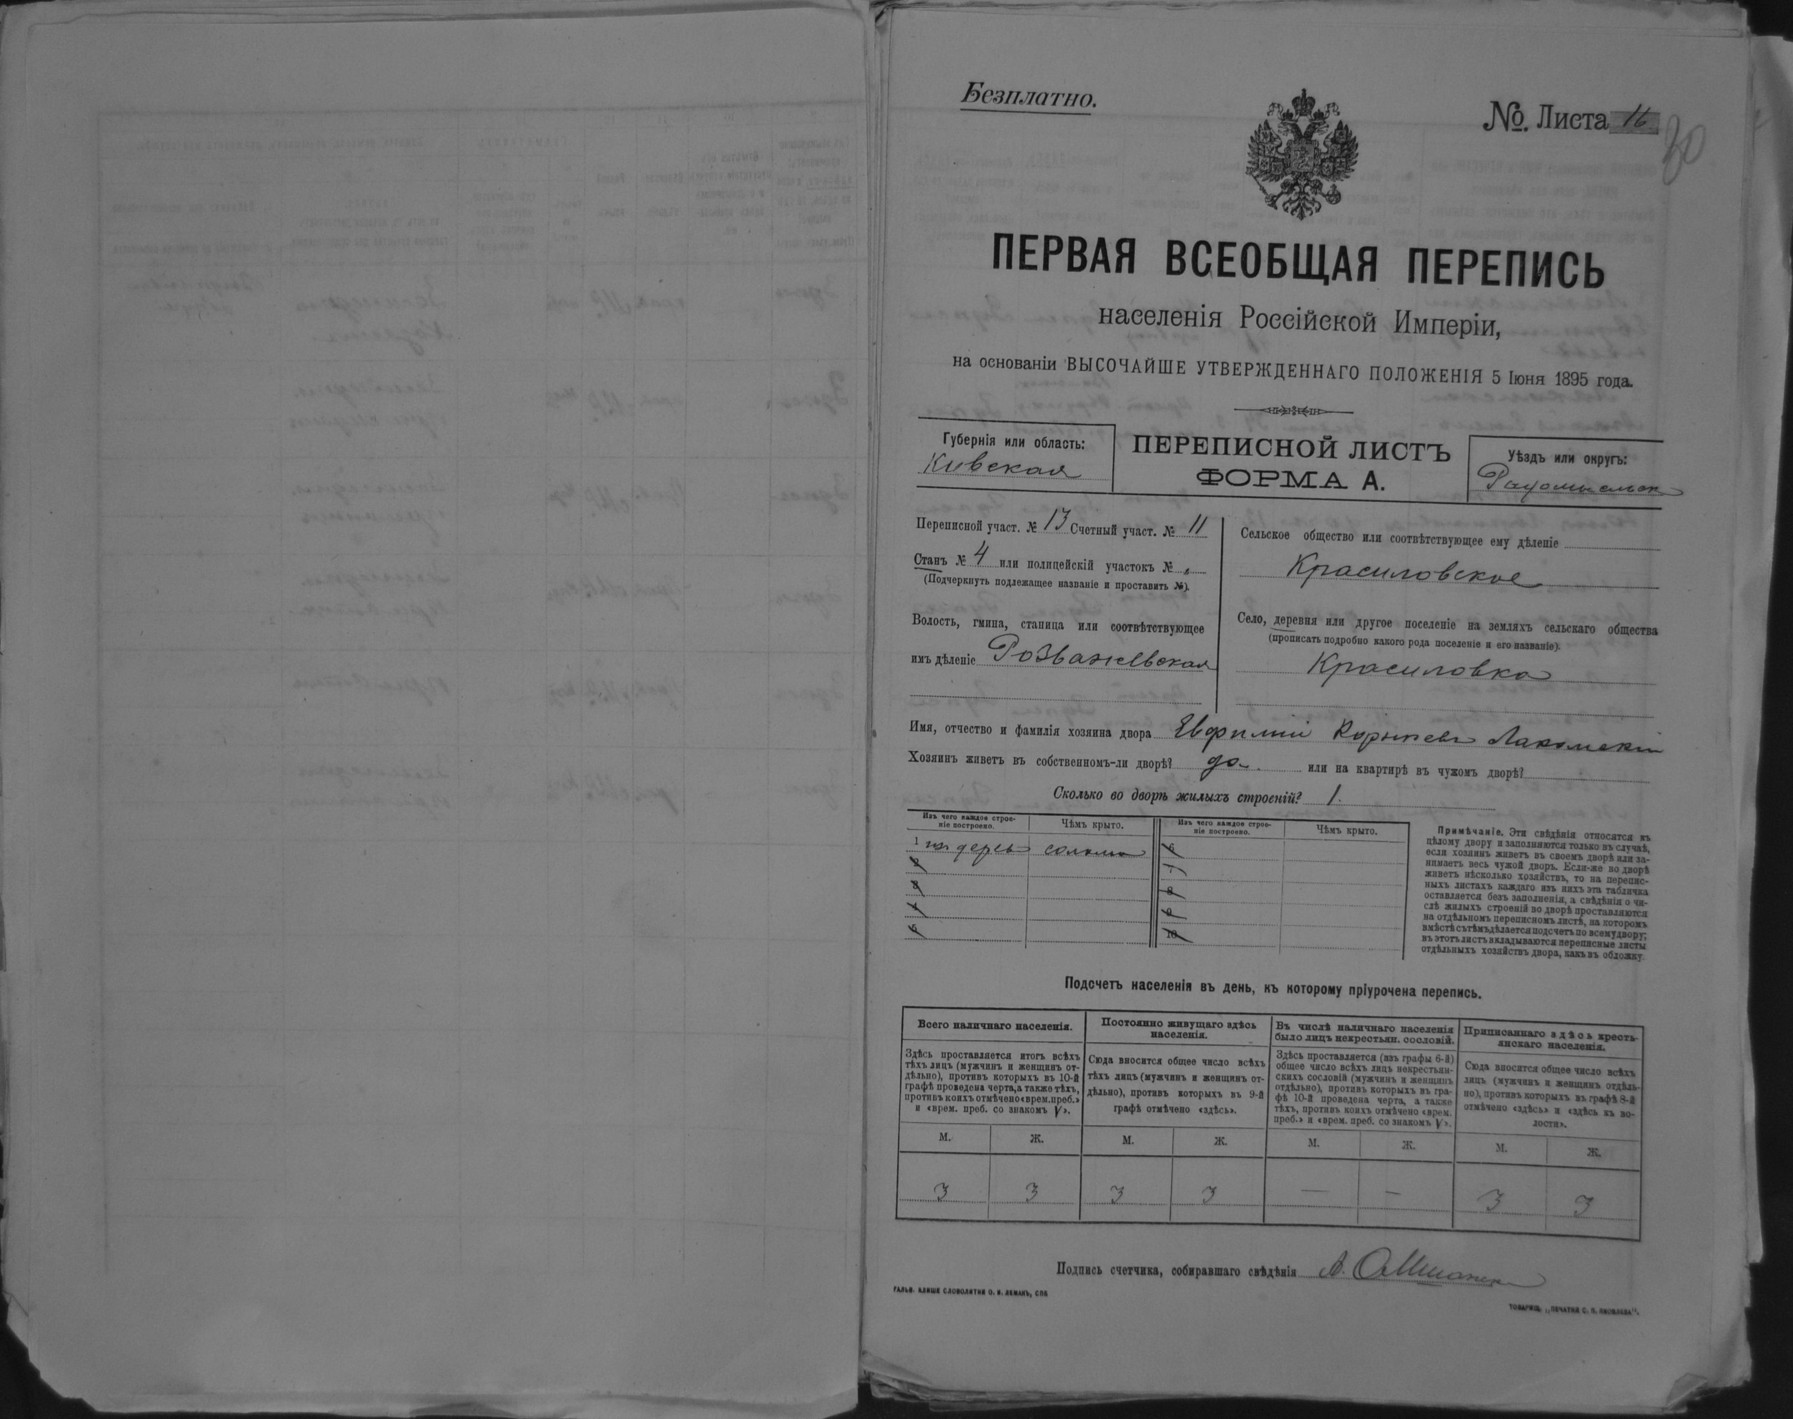 Безплатно.
№. Листа 16
30
ПЕРВАЯ ВСЕОБЩАЯ ПЕРЕПИСЬ
населенія Россійской Имперіи,
на основаніи ВЫСОЧАЙШЕ УТВЕРЖДЕННАГО ПОЛОЖЕНІЯ 5 Іюня 1895 года.
Губернія или область:
Кивская
ПЕРЕПИСНОЙ ЛИСТЪ
ФОРМА А.
Уѣздъ или округъ:
Радомысльск
Переписной участ. № 13 Счетный участ. № 11
Станъ № 4 или полицейскій участокъ №
(Подчеркнуть подлежащее названіе и проставить №).
Волость, гмина, станица или соотвѣтствующее
имъ дѣленіе Розважевская
Сельское общество или соотвѣтствующее ему дѣленіе
Красиловское
Село, деревня или другое поселеніе на земляхъ сельскаго общества
(прописать подробно какого рода поселеніе и его названіе).
Красиловка
Имя, отчество и фамилія хозяина двора Евфимій Корнѣевъ Лакомскій
Хозяинъ живетъ въ собственномъ-ли дворѣ? да или на квартирѣ въ чужомъ дворѣ?
Сколько во дворѣ жилыхъ строеній? 1.
Изъ чего каждое строе-
ніе построено.
Чѣмъ крыто.
Изъ чего каждое строе-
ніе построено.
Чѣмъ крыто.
1 изъ дерев солома
2
3
4
5
6
7
8
9
10
Примѣчаніе. Эти свѣдѣнія относятся къ
цѣлому двору и заполняются только въ случаѣ,
если хозяинъ живетъ въ своемъ дворѣ или за-
нимаетъ весь чужой дворъ. Если-же во дворѣ
живетъ нѣсколько хозяйствъ, то на перепис-
ныхъ листахъ каждаго изъ нихъ эта табличка
оставляется безъ заполненія, а свѣдѣнія о чи-
слѣ жилыхъ строеній во дворѣ проставляются
на отдѣльномъ переписномъ листѣ, на которомъ
вмѣстѣ съ тѣмъ дѣлается подсчетъ по всему двору;
въ этотъ листъ вкладываются переписные листы
отдѣльныхъ хозяйствъ двора, какъ въ обложку.
Подсчетъ населенія въ день, къ которому пріурочена перепись.
Всего наличнаго населенія.
Здѣсь проставляется итогъ всѣхъ
тѣхъ лицъ (мужчинъ и женщинъ от-
дѣльно), противъ которыхъ въ 10-й
графѣ проведена черта, а также тѣхъ,
противъ коихъ отмѣчено «врем. преб.»
и «врем. преб. со знакомъ V».
Постоянно живущаго здѣсь
населенія.
Сюда вносится общее число всѣхъ
тѣхъ лицъ (мужчинъ и женщинъ от-
дѣльно), противъ которыхъ въ 9-й
графѣ отмѣчено «здѣсь».
Въ числѣ наличнаго населенія
было лицъ некрестьян. сословій.
Здѣсь проставляется (изъ графы 6-й)
общее число всѣхъ лицъ некрестьян-
скихъ сословій (мужчинъ и женщинъ
отдѣльно), противъ которыхъ въ гра-
фѣ 10-й проведена черта, а также
тѣхъ, противъ коихъ отмѣчено «врем.
преб.» и «врем. преб. со знакомъ V».
Приписаннаго здѣсь кресть-
янскаго населенія.
Сюда вносится общее число всѣхъ
лицъ (мужчинъ и женщинъ отдѣль-
но), противъ которыхъ въ графѣ 8-й
отмѣчено «здѣсь» и «здѣсь къ во-
лости».
М. Ж. М. Ж. М. Ж. М. Ж.
3 3 3 3 — — 3 3
Подпись счетчика, собиравшаго свѣдѣнія А.
ГАЛЬВ. КЛИШЕ СЛОВОЛИТНИ О. И. ЛЕМАНЪ, СПБ.
ТОВАРИЩ. „ПЕЧАТНЯ С. П. ЯКОВЛЕВА".